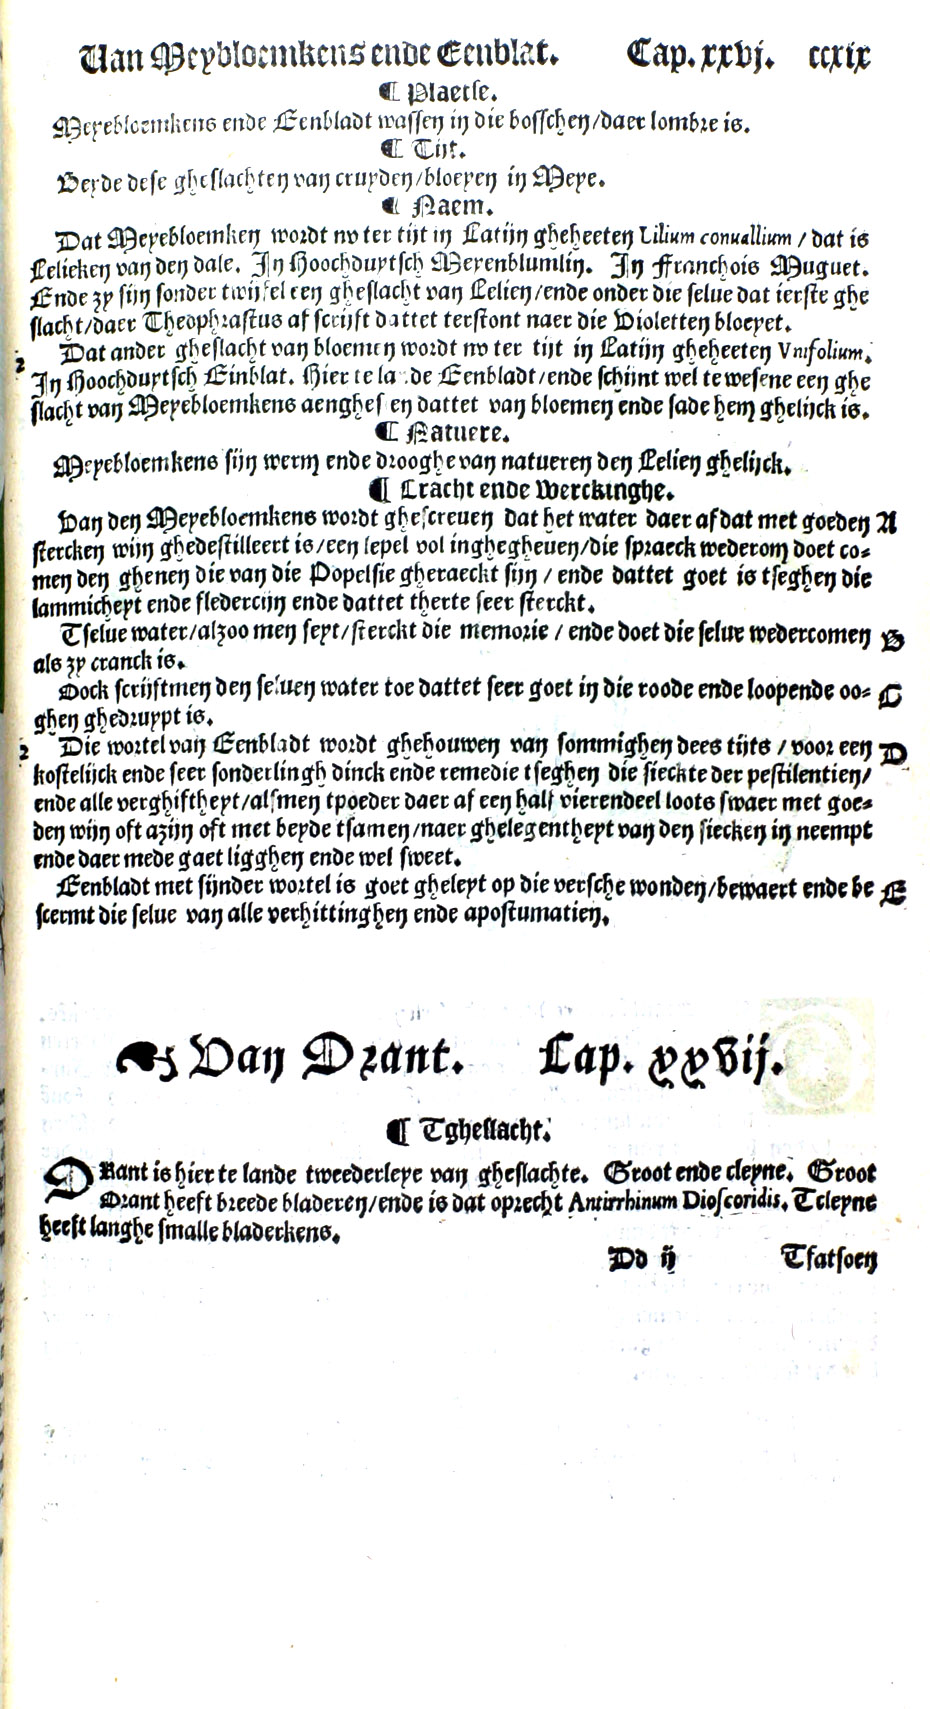 Van Meybloemkens ende Eenblat. Cap. xxvj. ccxix
¶ Plaetse.
Meyebloemkens ende Eenbladt wassen in die bosschen/daer lombre is.
¶ Tijt.
Beyde dese gheslachten van cruyden/bloeyen in Meye.
¶ Naem.
Dat Meyebloemken wordt nv ter tijt in Latijn gheheeten Lilium conuallium / dat is
Lelieken van den dale. In Hoochduytsch Meyenblumlin. In Franchois Muguet.
Ende zy sijn sonder twijfel een gheslacht van Lelien/ende onder die selue dat ierste ghe
slacht/daer Theophrastus af scrijft dattet terstont naer die Violetten bloeyet.
2 Dat ander gheslacht van bloemen wordt nv ter tijt in Latijn gheheeten Vnifolium.
In Hoochduytsch Einblat. Hier te lande Eenbladt/ende schijnt wel te wesene een ghe
slacht van Meyebloemkens aenghesien dattet van bloemen ende sade hem ghelijck is.
¶ Natuere.
Meyebloemkens sijn werm ende drooghe van natueren den Lelien ghelijck.
¶ Cracht ende Werckinghe.
Van den Meyebloemkens wordt ghescreuen dat het water daer af dat met goeden A
stercken wijn ghedestilleert is/een lepel vol inghegheuen/die spraeck wederom doet co=
men den ghenen die van die Popelsie gheraeckt sijn / ende dattet goet is tseghen die
lammicheyt ende fledercijn ende dattet therte seer sterckt.
Tselue water/alzoo men seyt/sterckt die memorie / ende doet die selue wedercomen B
als zy cranck is.
Oock scrijftmen den seluen water toe dattet seer goet in die roode ende loopende oo= C
ghen ghedruypt is.
2 Die wortel van Eenbladt wordt ghehouwen van sommighen dees tijts / voor een D
kostelijck ende seer sonderlingh dinck ende remedie tseghen die sieckte der pestilentien/
ende alle verghiftheyt/alsmen tpoeder daer af een half vierendeel loots swaer met goe=
den wijn oft azijn oft met beyde tsamen/naer ghelegentheyt van den siecken in neempt
ende daer mede gaet ligghen ende wel sweet.
Eenbladt met sijnder wortel is goet gheleyt op die versche wonden/bewaert ende be E
scermt die selue van alle verhittinghen ende apostumatien.
Van Orant. Cap. xxvij.
¶ Tgheslacht.
ORant is hier te lande tweederleye van gheslachte. Groot ende cleyne. Groot
Orant heeft breede bladeren/ende is dat oprecht Antirrhinum Dioscoridis. Tcleyne
heeft langhe smalle bladerkens.
Dd ij Tfatsoen